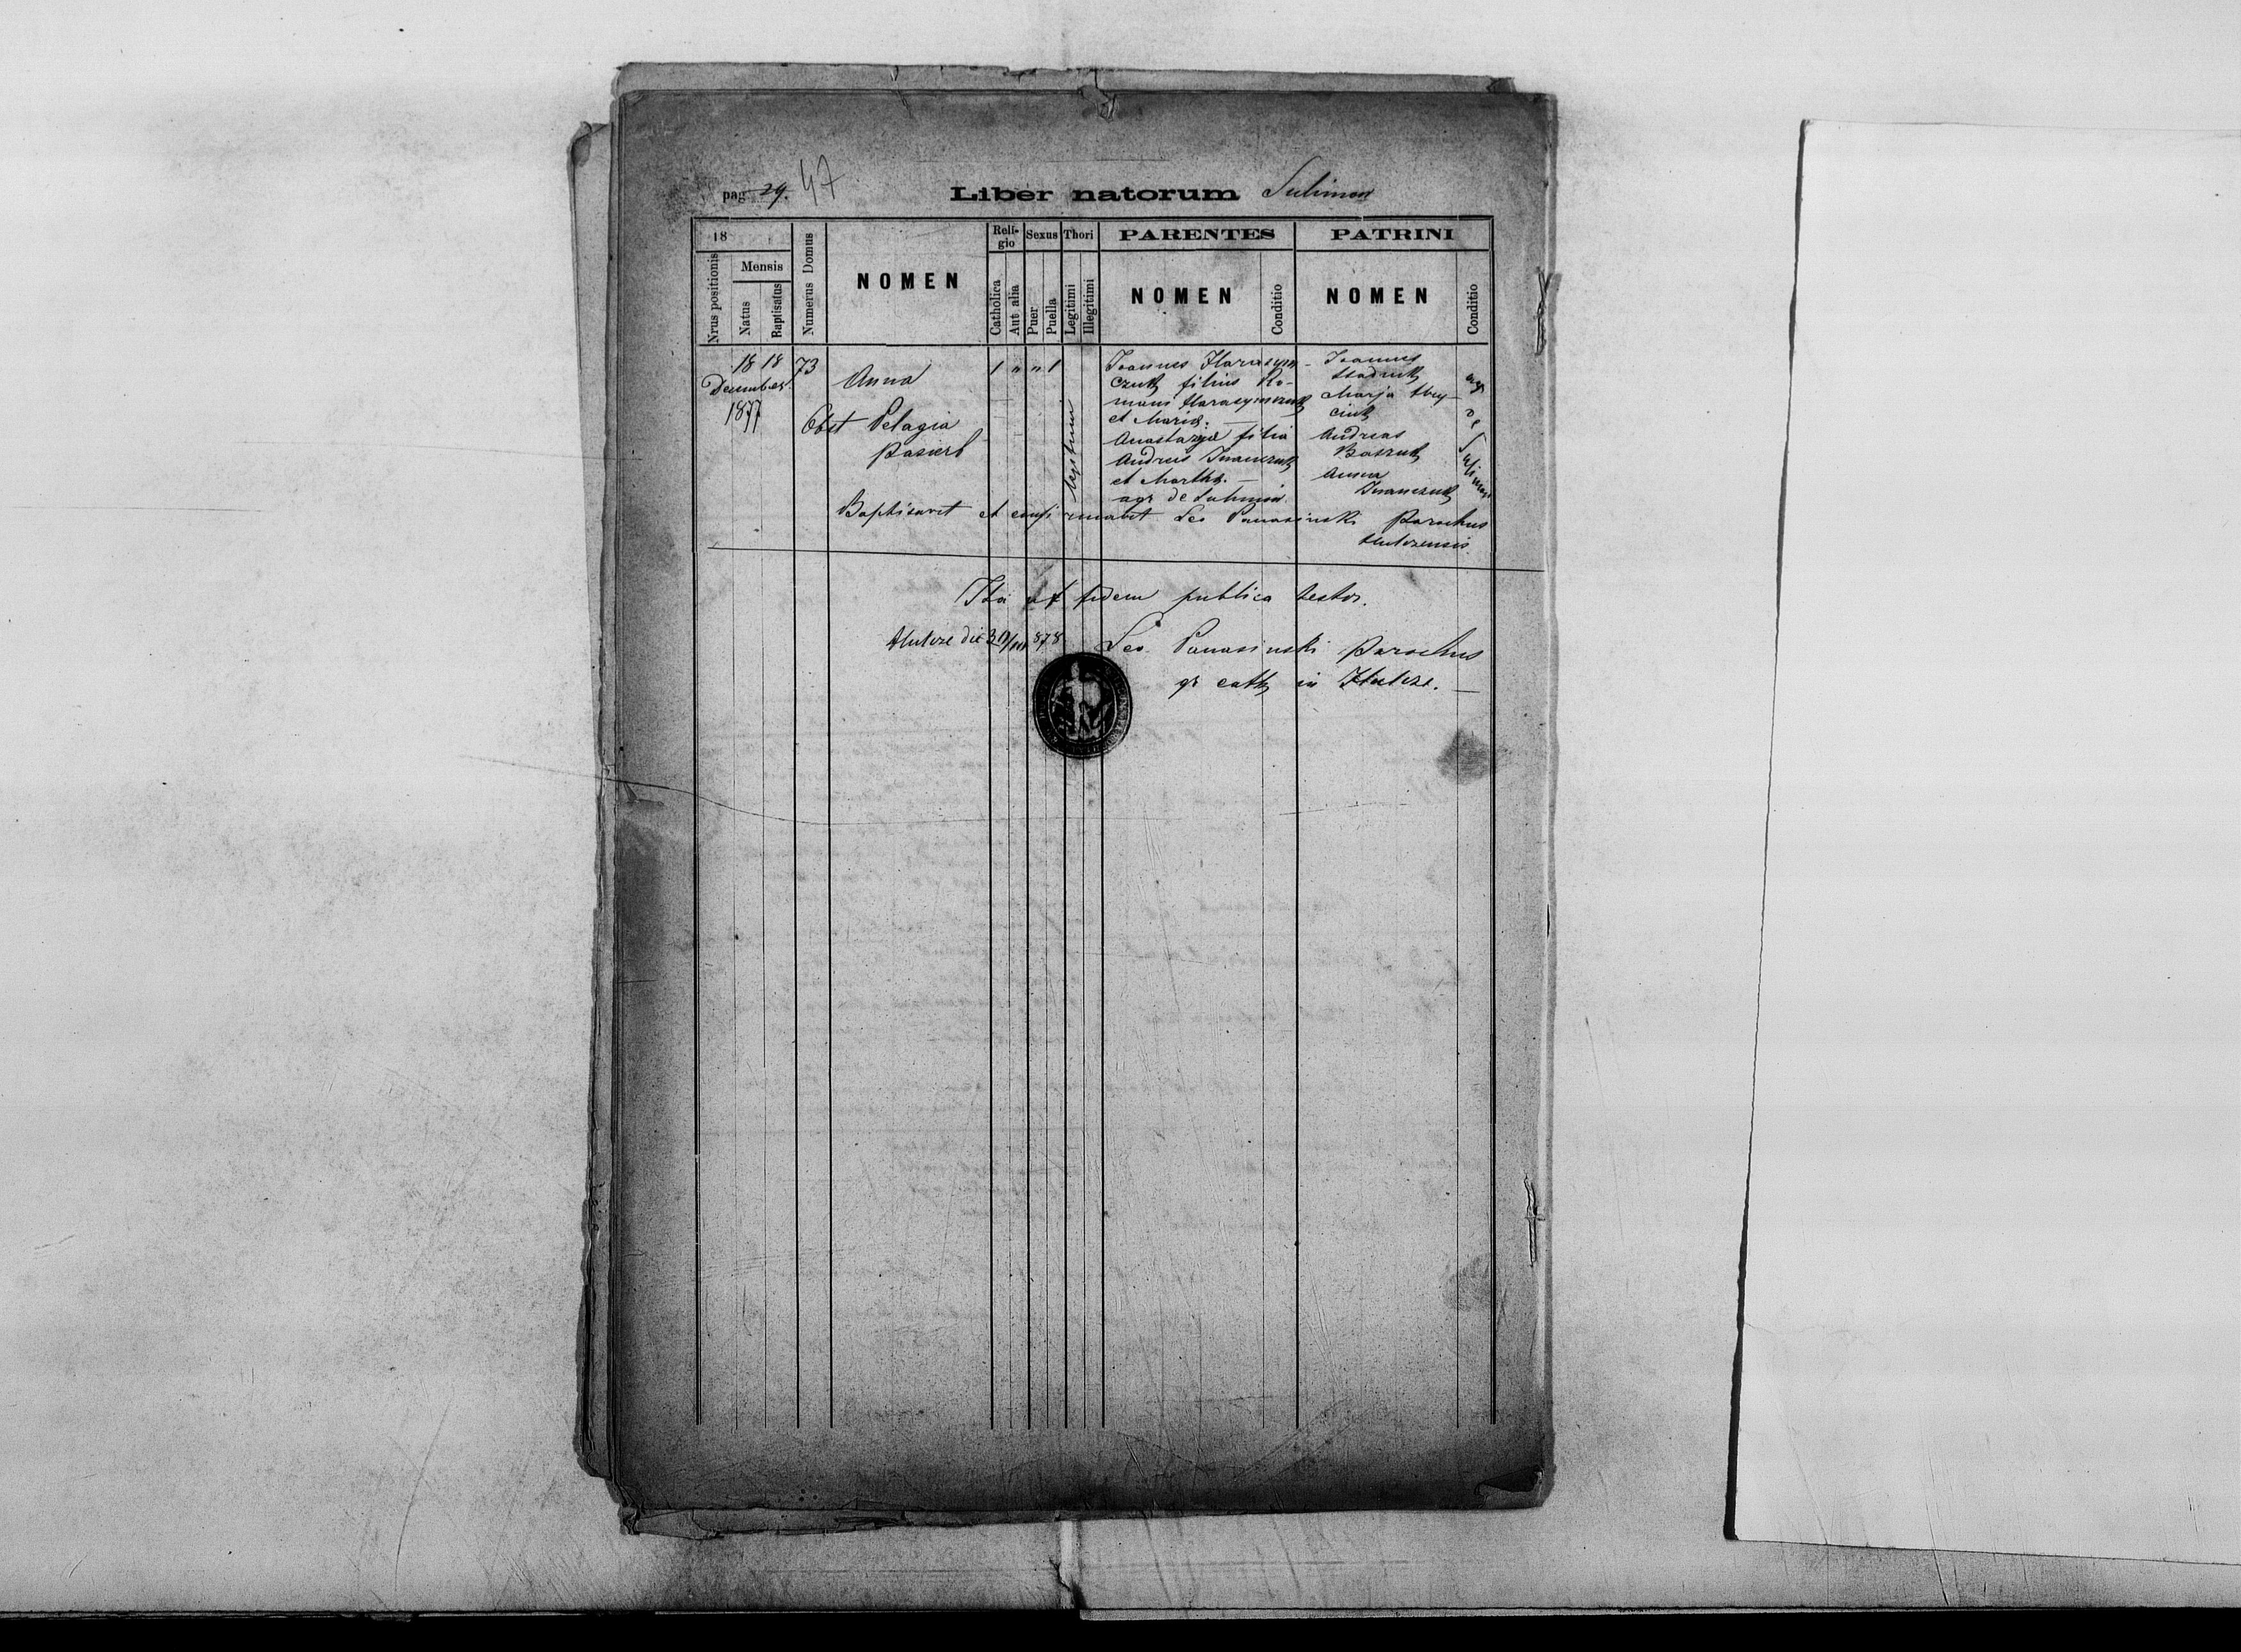 pag 29. 47
Liber natorum Sulimow
18
Nrus positionis
Mensis
Natus
Baptisatus
Numerus Domus
NOMEN
Religio
Catholica
Aut alia
Sexus
Puer
Puella
Thori
Legitimi
Illegitimi
PARENTES
NOMEN
Conditio
PATRINI
NOMEN
Conditio
18 18 73
December
1877
Anna
Obst Pelagia
Pasierb
1 " " 1
legitimi
Joannes Harasym-
czuk filius Ro-
mani Harasymczuk
et Maria. —
Anastazya filia
Andreis Iwanczuk
et Martha. —
agr de Sulimow
Joannes
Hadriuk
Marja
ciuk
Andreas
Anna
Iwanczuk
agr
de
Sulimow
Baptisavit et confirmavit Leo Panasinski Parochus
Hulczensis.
Ita ut fidem publica testor.
Hulcze die 878
Leo Panasinski parochus
gr cath in Hulcze. —